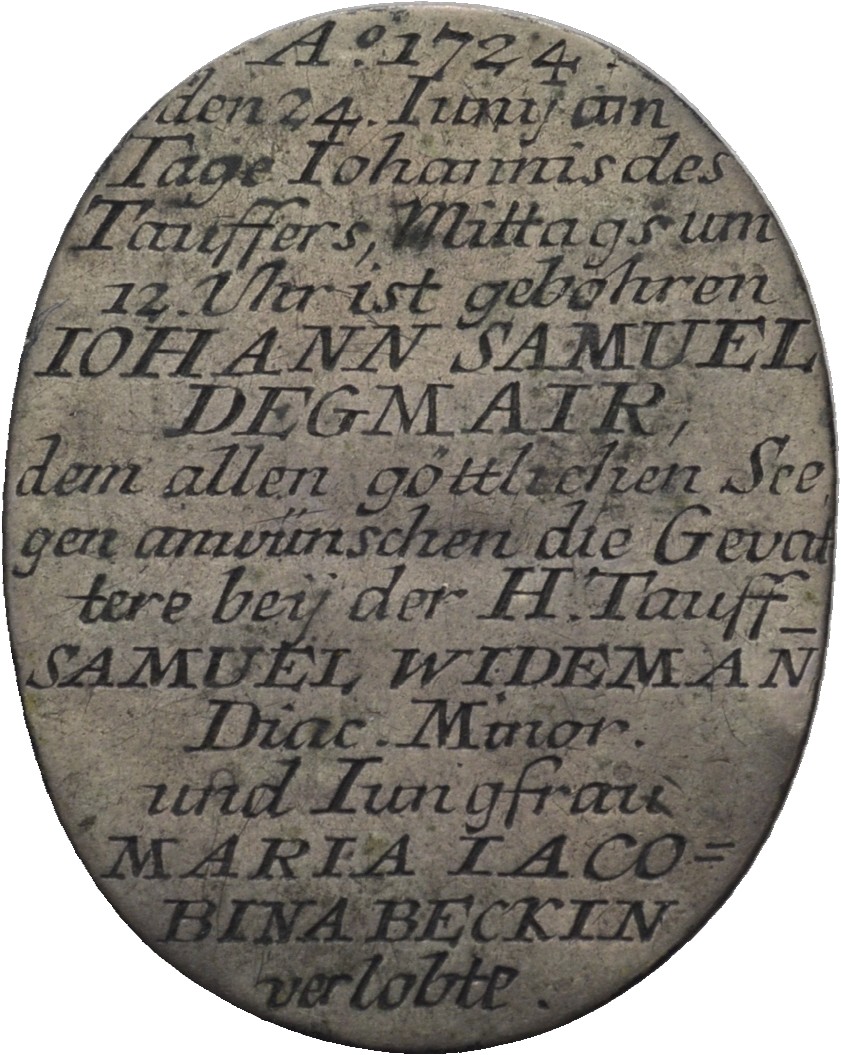 Aº. 1724.
den 24. Iunij am
Tage Iohannis des
Tauffers, Mittags um
12. Uhr ist gebohren
IOHANN SAMUEL
DEGMAIR,
dem allen göttlichen See
gen anwünschen die Gevat
tere beij der H. Tauff_
SAMUEL WIDEMAN
Diac. Minor.
und Iungfrau
MARIA IACO=
BINA BECKIN
verlobte.